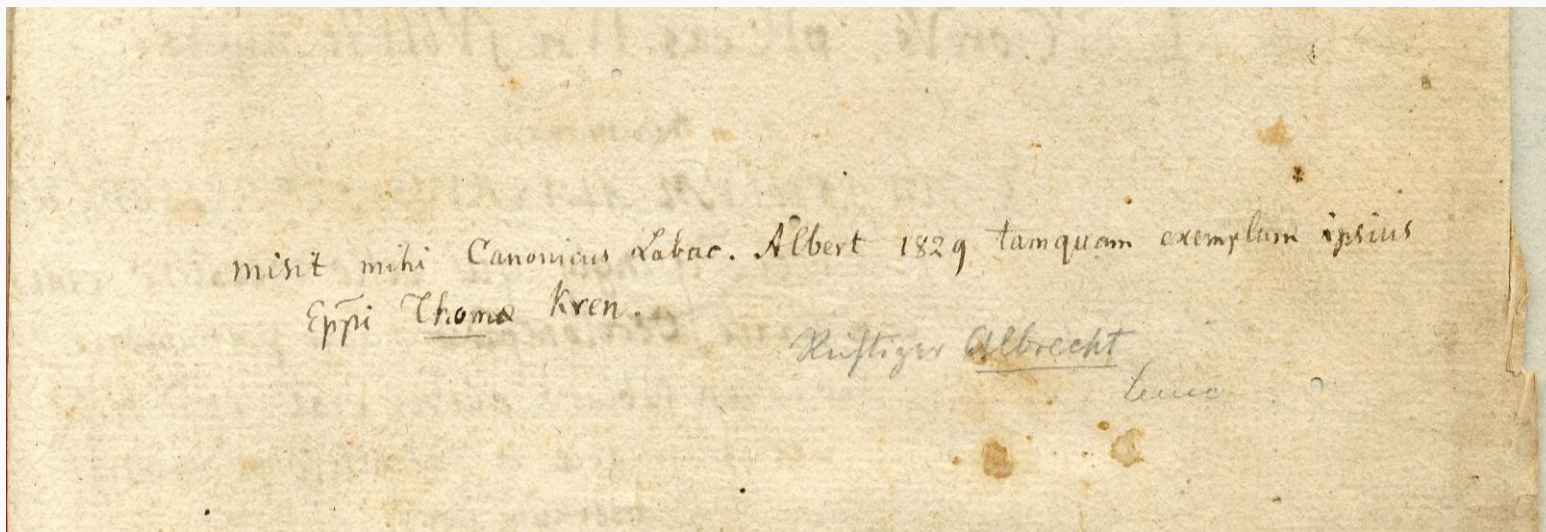 misit mihi Canonicus Labac. Albert 1829 tamquam exemplum ipsius
Epp̄i Thomæ Kren.
Albrecht